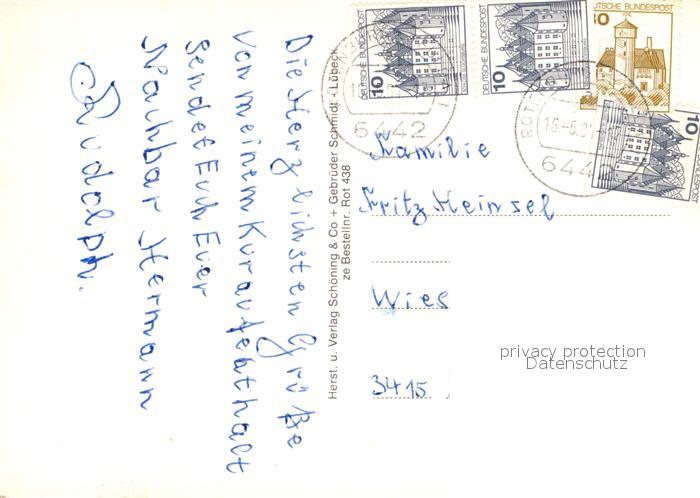 Die Herzlichsten Grüße
von meinem Kuraufenthalt
sendet Euch Euer
Nachbar Hermann
Rudolph.
Herst. u. Verlag Schöning & Co + Gebrüder Schmidt - Lübeck
ze Bestellnr. Rot 438
DEUTSCHE BUNDESPOST
10
DEUTSCHE BUNDESPOST
10
DEUTSCHE BUNDESPOST
10
6442
ROT
6442
Familie
Fritz Heinsel
Wies
3415
privacy protection
Datenschutz